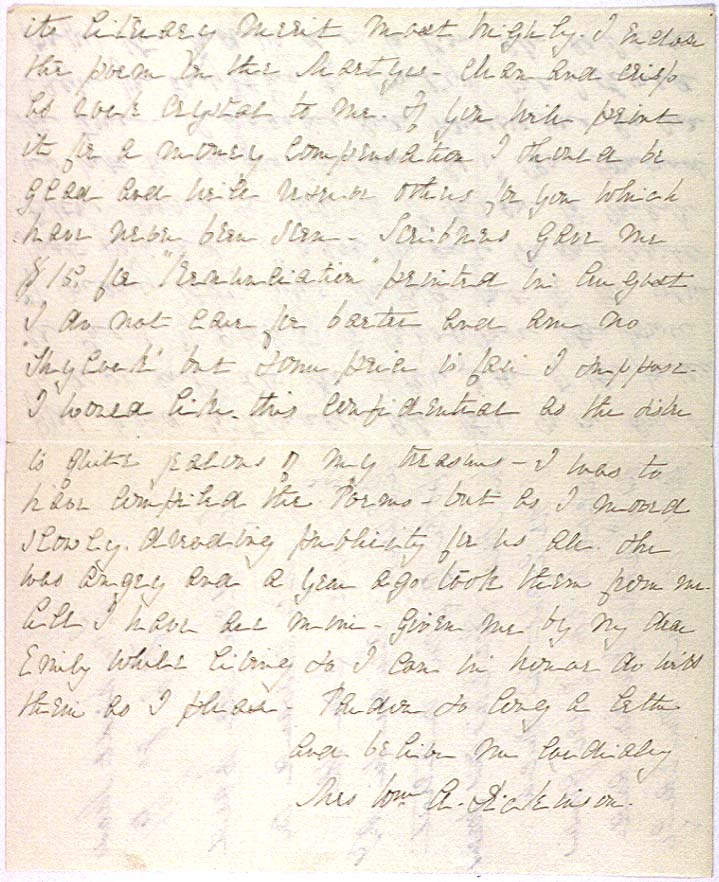 its literary merit most highly. I enclose
the poem on the Martyrs - clean and crisp
as rock crystal to me. If you will print
it for a money compensation I should be
glad and will reserve others for you which
have never been seen. Scribners gave me
$15. for "Renunciation" printed in August
I do not care for barter and am no
"Shylock" but some price is fair I suppose.
I would like this confidential as the sister
is quite jealous of my treasures - I was to
have compiled the Poems - but as I moved
slowly, dreading publicity for us all she
was angry and a year ago took them from me.
All I have are mine - given me by my dear
Emily while living so I can in honor do with
them as I please - Pardon so long a letter
and believe me cordially
Mrs Wm. A. Dickinson.